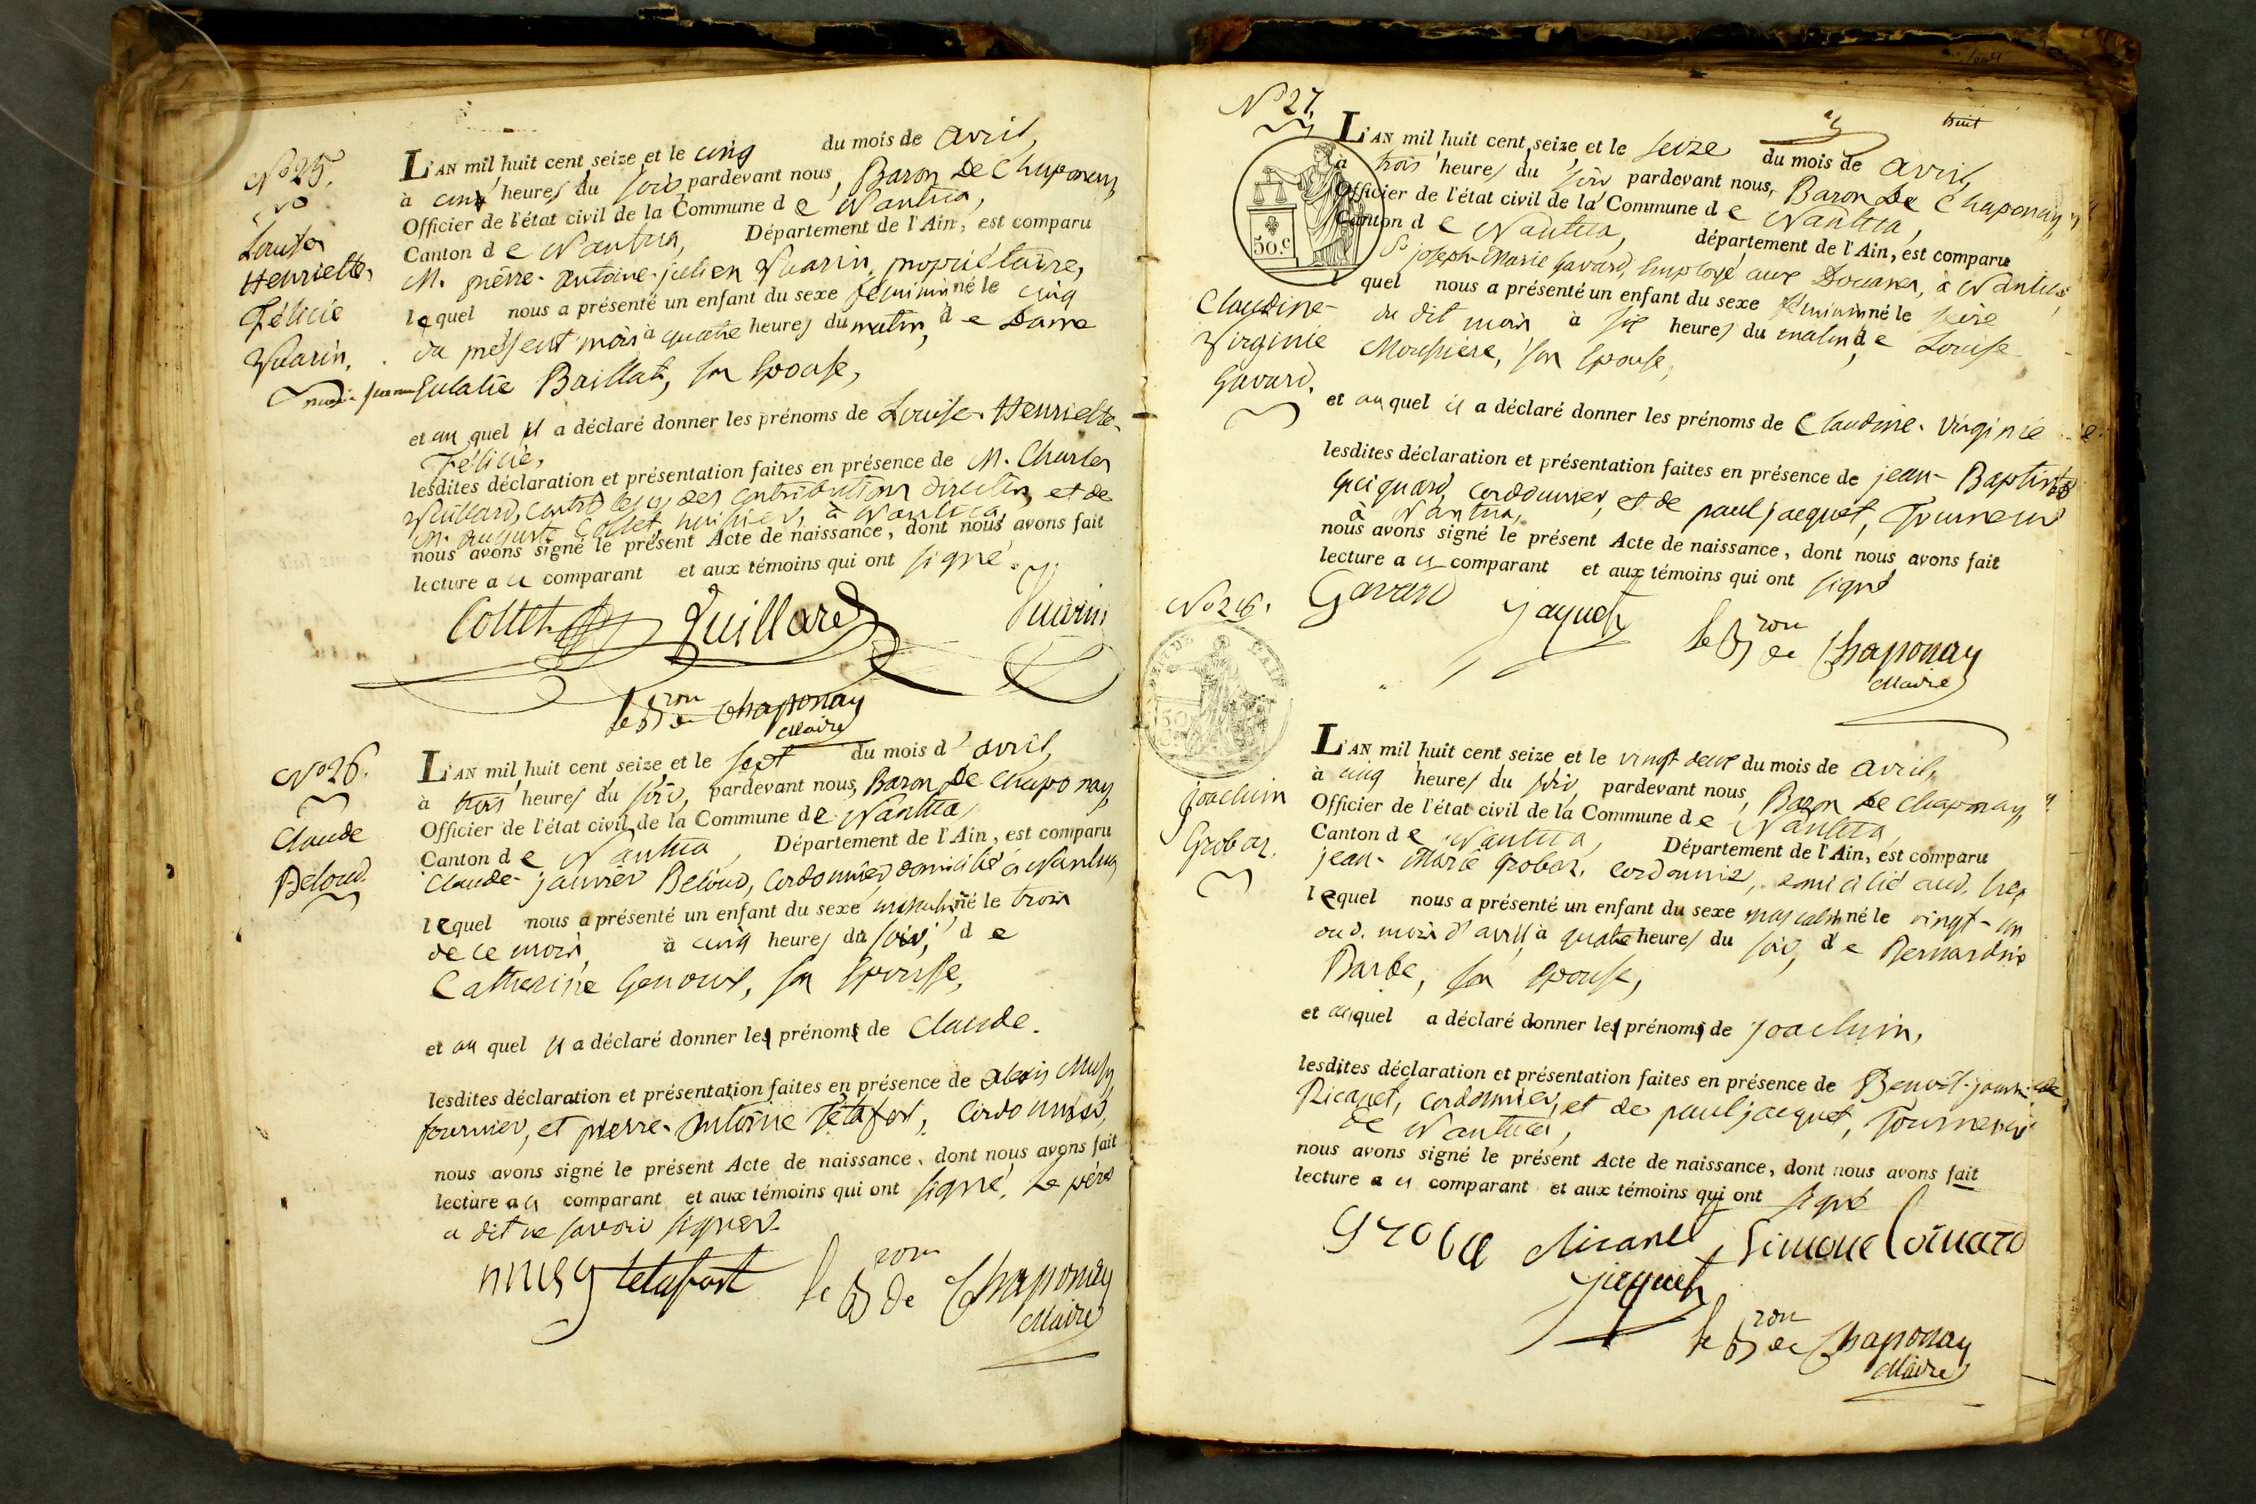 No 25.
Louise
Henriette
Félicie
Vuarin.
L'AN mil huit cent seize et le cinq du mois de avril,
à cinq heures du soir pardevant nous, Baron De Chaponay
Officier de l'état civil de la Commune de Nantua,
Canton de Nantua, Département de l'Ain, est comparu
M. pierre-antoine-julien Vuarin, propriétaire,
lequel nous a présenté un enfant du sexe féminin né le cinq
du présent mois à quatre heures du matin, de Dame
Eulalie Baillat, son Epouse,
et au quel il a déclaré donner les prénoms de Louise-Henriette-
Félicie,
lesdites déclaration et présentation faites en présence de M. Charles
des contributions directes, et de
M. auguste Collet, huissier, à Nantua,
nous avons signé le présent Acte de naissance, dont nous avons fait
lecture au comparant et aux témoins qui ont signé.
Collet Quillard Vuarin
le Bron de Chaponay
Maire
No 26.
Claude
Beloud.
L'AN mil huit cent seize et le sept du mois d'avril,
à trois heures du soir, pardevant nous, Baron De Chaponay,
Officier de l'état civil de la Commune de Nantua,
Canton de Nantua, Département de l'Ain, est comparu
Claude-janvier Beloud, Cordonnier, domicilié à Nantua
lequel nous a présenté un enfant du sexe masculin, né le trois
de ce mois, à cinq heures du soir, de
Catherine Genoux, son Epouse,
et au quel il a déclaré donner les prénoms de Claude.
lesdites déclaration et présentation faites en présence de alexis Musy
fournier, et pierre-antoine Tétafort, Cordonnier,
nous avons signé le présent Acte de naissance, dont nous avons fait
lecture au comparant et aux témoins qui ont signé, Le père
a dit ne savoir signer.
musy tetafort le Bron de Chaponay
Maire
No 27.
huit
L'AN mil huit cent seize et le seize du mois de avril,
à trois heures du soir pardevant nous, Baron De Chaponay,
Officier de l'état civil de la Commune de Nantua,
Canton de Nantua, département de l'Ain, est comparu
50.c
Sr joseph-Marie Gavard, Employé aux Douanes, à Nantua,
lequel nous a présenté un enfant du sexe féminin né le seize
Claudine-
Virginie
Gavard.
du dit mois à six heures du matin, de Louise
Moussiere, son Epouse,
et au quel il a déclaré donner les prénoms de Claudine-Virginie
lesdites déclaration et présentation faites en présence de jean-Baptiste
cordonnier, et de paul jacquet, Tourneur
à Nantua,
nous avons signé le présent Acte de naissance, dont nous avons fait
lecture au comparant et aux témoins qui ont signé
Gavard jaquet
le Bron de Chaponay
Maire
No 28.
Joachim
Grobaz.
L'AN mil huit cent seize et le vingt deux du mois de avril,
à cinq heures du soir, pardevant nous, Baron De Chaponay,
Officier de l'état civil de la Commune de Nantua,
Canton de Nantua, Département de l'Ain, est comparu
jean-Marie Grobaz, Cordonnier,
lequel nous a présenté un enfant du sexe masculin né le vingt-un
aud. mois d'avril à quatre heures du soir, de Bernardine
Barbe, son Epouse,
et auquel a déclaré donner les prénoms de Joachim,
lesdites déclaration et présentation faites en présence de Benoît
Ricanet, cordonnier, et de paul jacquet, Tourneur
de Nantua,
nous avons signé le présent Acte de naissance, dont nous avons fait
lecture au comparant et aux témoins qui ont signé
jaquet
le Bron de Chaponay
Maire